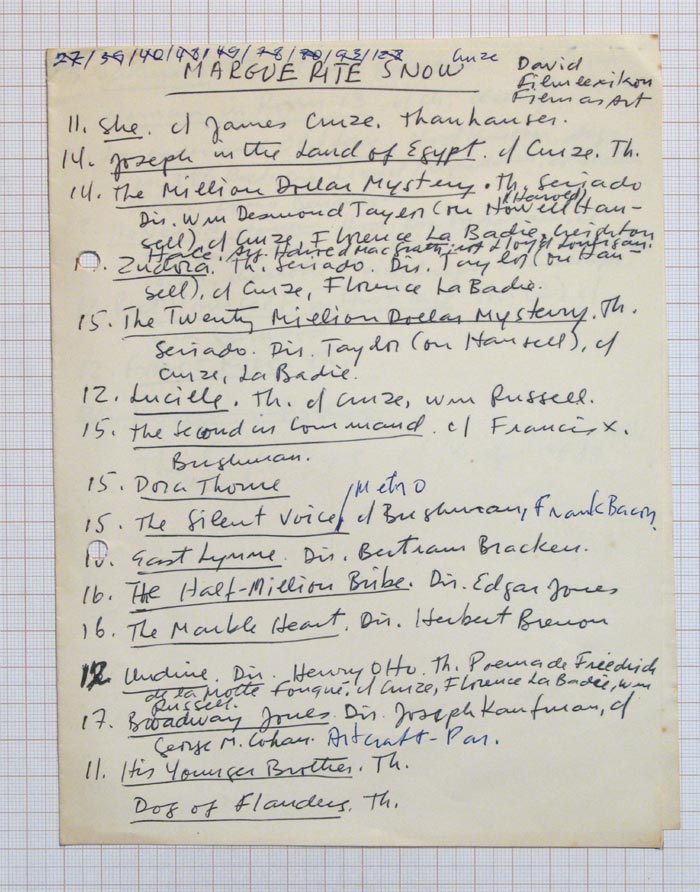 27/39/40/48/49/78/80/93/128
Cruze
MARGUERITE SNOW
David
Filmlexikon
Film as Art
11. She. c/ James Cruze. Thanhauser.
14. Joseph in the Land of Egypt. c/ Cruze. Th.
14. The Million Dollar Mystery. Th. Seriado
Dir. Wm Desmond Taylor (ou Howell Han-
(Harold)
sell), c/ Cruze, Florence La Badie, Creighton
Hale. Arg. Harold MacGrath, Lloyd Lonrigan.
Zudora. Th. Seriado. Dir. Taylor (ou Han-
sell), c/ Cruze, Florence La Badie.
15. The Twenty Million Dollar Mystery. Th.
Seriado. Dir. Taylor (ou Hansell), c/
Cruze, La Badie.
12. Lucille. Th. c/ Cruze, Wm Russell.
15. The Second in Command. c/ Francis X.
Bushman.
15. Dora Thorne
15. The Silent Voice / Metro c/ Bushman, Frank Bacon.
East Lynne. Dir. Bertram Bracken.
16. The Half-Million Bribe. Dir. Edgar Jones
16. The Marble Heart. Dir. Herbert Brenon
12 Undine. Dir. Henry Otto. Th. Poema de Friedrich
de la Motte Fouqué, c/ Cruze, Florence La Badie, Wm
Russell.
17. Broadway Jones. Dir. Joseph Kaufman, c/
George M. Cohan. Artcraft-Par.
11. His Younger Brother. Th.
Dog of Flanders. Th.